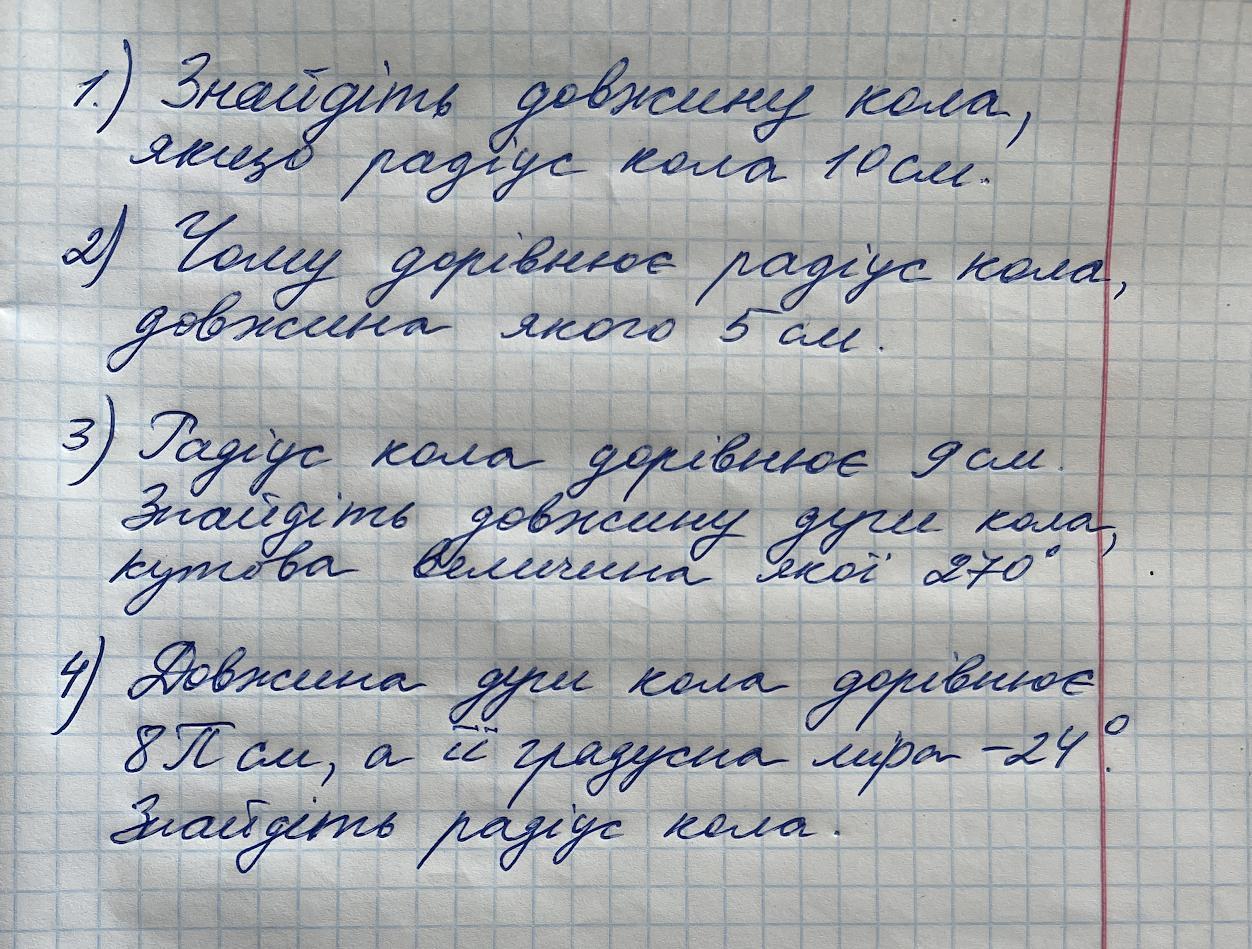 1.) Знайдіть довжину кола,
якщо радіус кола 10 см.
2) Чому дорівнює радіус кола,
довжина якого 5 см.
3) Радіус кола дорівнює 9 см.
Знайдіть довжину дуги кола,
кутова величина якої 270°
4) Довжина дуги кола дорівнює
8П см, а її градусна міра – 24°.
Знайдіть радіус кола.